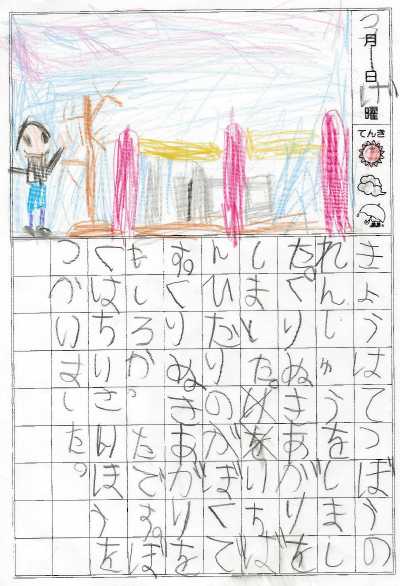 月 日 曜
てんき
きょうはてつぼうの
れんしゅうをしまし
た。ぐりぬきあがりを
しました。いちば
んひだりのがぼくで
す。ぐりぬきあがりを
もしろか。たです。ぼ
くはちりさんほうを
つかいました。